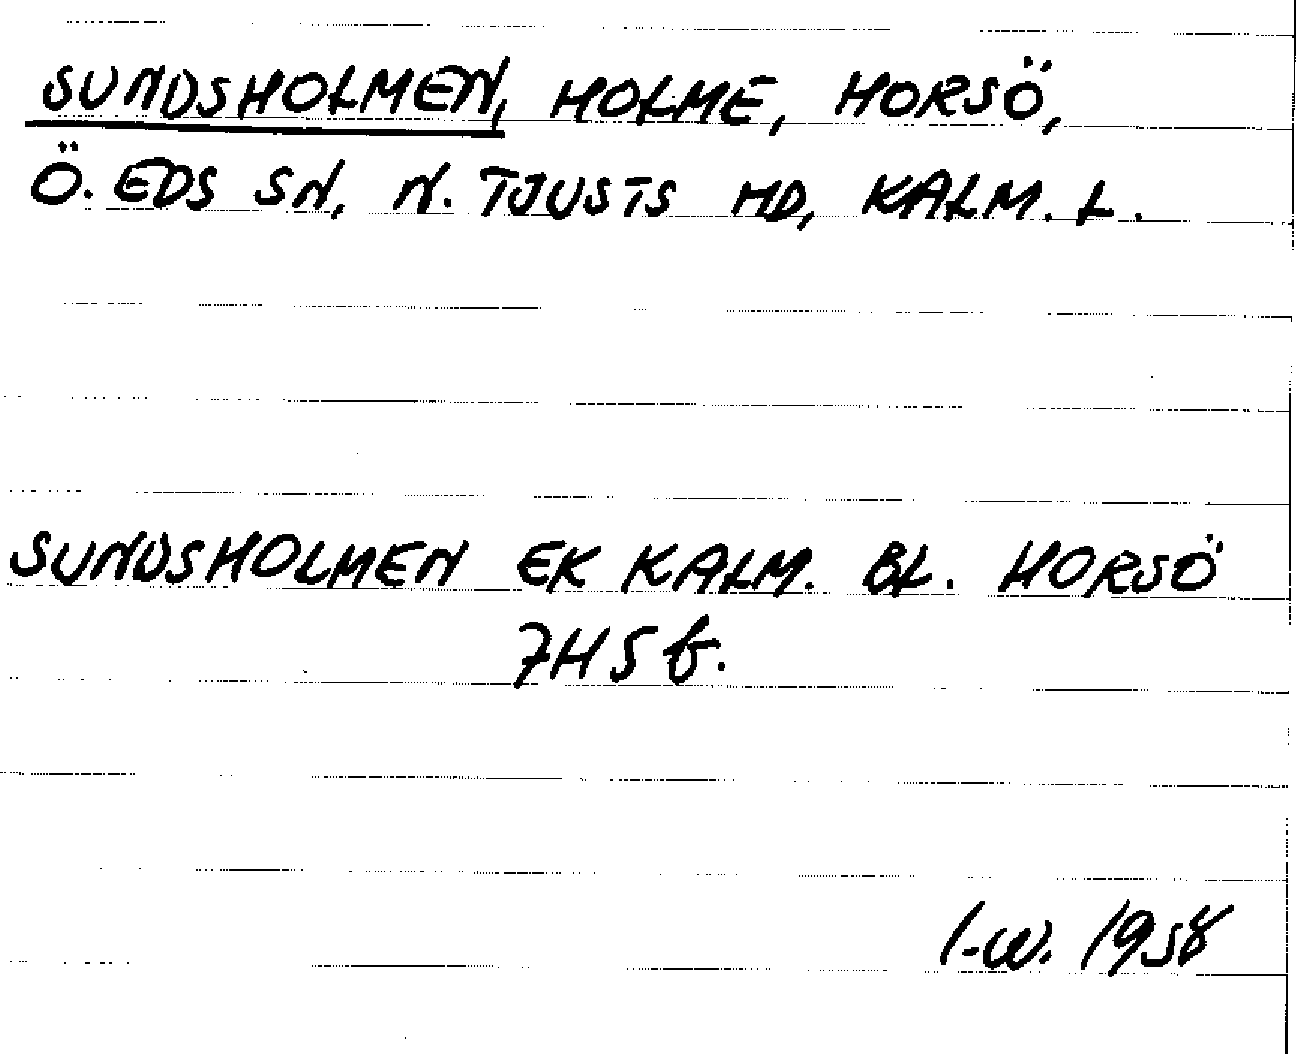 SUNDSHOLMEN, HOLME, HORSÖ,
Ö. EDS SN, N. TJUSTS HD, KALM. L.
SUNDSHOLMEN EK KALM. BL. HORSÖ
7H5f.
I-w. 1958